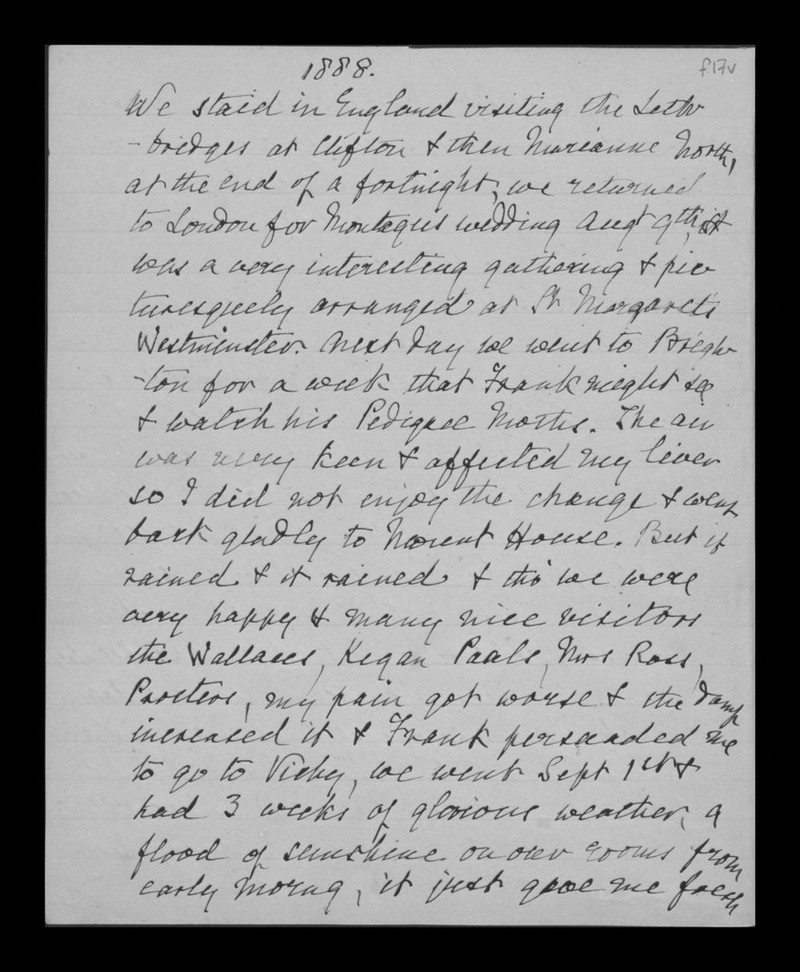 1888.
f17v
We staid in England visiting the Leth
-bridges at Clifton & then Marianne North,
at the end of a fortnight, we returned
to London for Montagus wedding Augt 9th, it
was a very interesting gathering & pic
turesquely arranged at St Margarets
Westminster. Next day we went to Brigh
-ton for a week that Frank might see
& watch his Pedigree Moths. The air
was very keen & affected my liver
so I did not enjoy the change & went
back gladly to House. But it
rained & it rained & tho' we were
very happy & many nice visitors
the Wallaces, Kegan Pauls, Mrs Ross,
Procters, my pain got worse & the damp
increased it & Frank persuaded me
to go to Vichy, we went Sept 1st &
had 3 weeks of glorious weather, a
flood of sunshine on our rooms from
early morng, it just gave me fresh